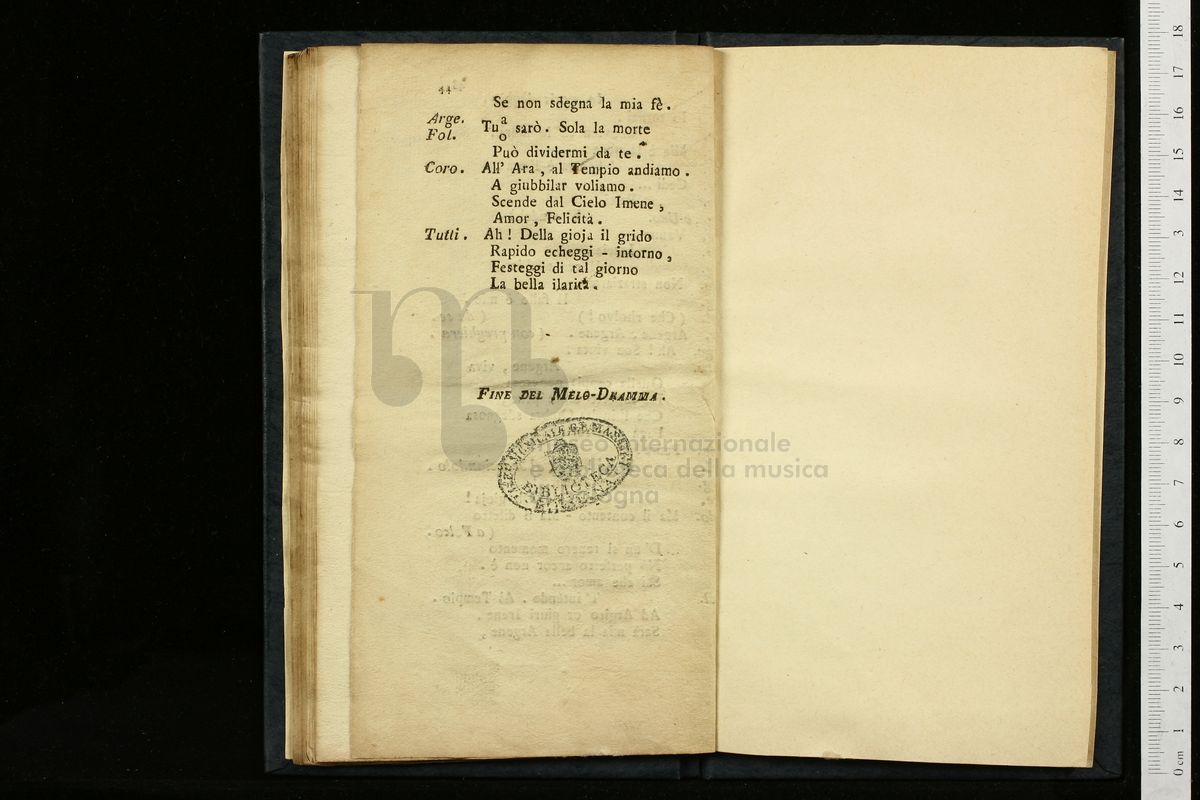 44
Se non sdegna la mia fè.
Arge. Fol. Tu a o sarò. Sola la morte
Può dividermi da te.
Coro. All' Ara, al Tempio andiamo.
A giubbilar voliamo.
Scende dal Cielo Imene,
Amor, Felicità.
Tutti. Ah! Della gioja il grido
Rapido echeggi - intorno,
Festeggi di tal giorno
La bella ilarità.
FINE DEL MELO-DRAMMA.
BIBLIOTECA
museo internazionale
e biblioteca della musica
bologna
0 cm 1 2 3 4 5 6 7 8 9 10 11 12 13 14 15 16 17 18